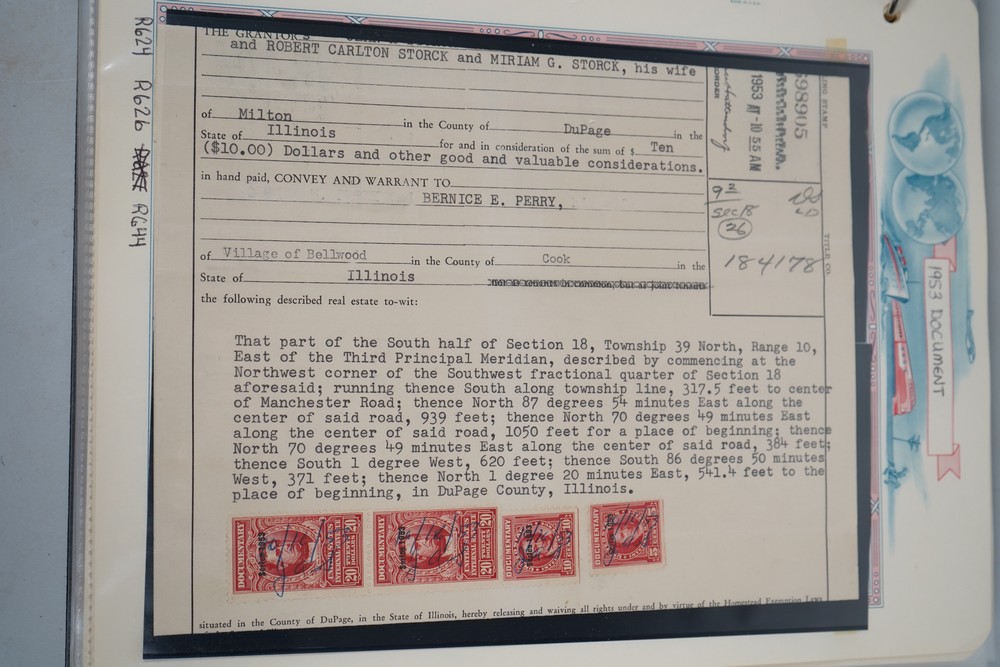 R624 R626 RG44
THE GRANTORS
and ROBERT CARLTON STORCK and MIRIAM G. STORCK, his wife
of Milton in the County of DuPage in the
State of Illinois for and in consideration of the sum of $ Ten
($10.00) Dollars and other good and valuable considerations.
in hand paid, CONVEY AND WARRANT TO
BERNICE E. PERRY,
of Village of Bellwood in the County of Cook in the
State of Illinois
the following described real estate to-wit:
That part of the South half of Section 18, Township 39 North, Range 10,
East of the Third Principal Meridian, described by commencing at the
Northwest corner of the Southwest fractional quarter of Section 18
aforesaid; running thence South along township line, 317.5 feet to center
of Manchester Road; thence North 87 degrees 54 minutes East along the
center of said road, 939 feet; thence North 70 degrees 49 minutes East
along the center of said road, 1050 feet for a place of beginning; thence
North 70 degrees 49 minutes East along the center of said road, 384 feet;
thence South 1 degree West, 620 feet; thence South 86 degrees 50 minutes
West, 371 feet; thence North 1 degree 20 minutes East, 541.4 feet to the
place of beginning, in DuPage County, Illinois.
situated in the County of DuPage, in the State of Illinois, hereby releasing and waiving all rights under and by virtue of the Homestead Exemption Laws
698905
STAMP
1953
-10 55 AM
ORDER
9 2
Sec 18
26
184178
TITLE CO.
DOCUMENTARY
20
DOLLARS
DOCUMENTARY
20
DOLLARS
DOCUMENTARY
10
DOCUMENTARY
15
1953 DOCUMENT